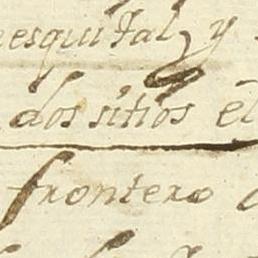 esquital y
dos sitios el
frontero